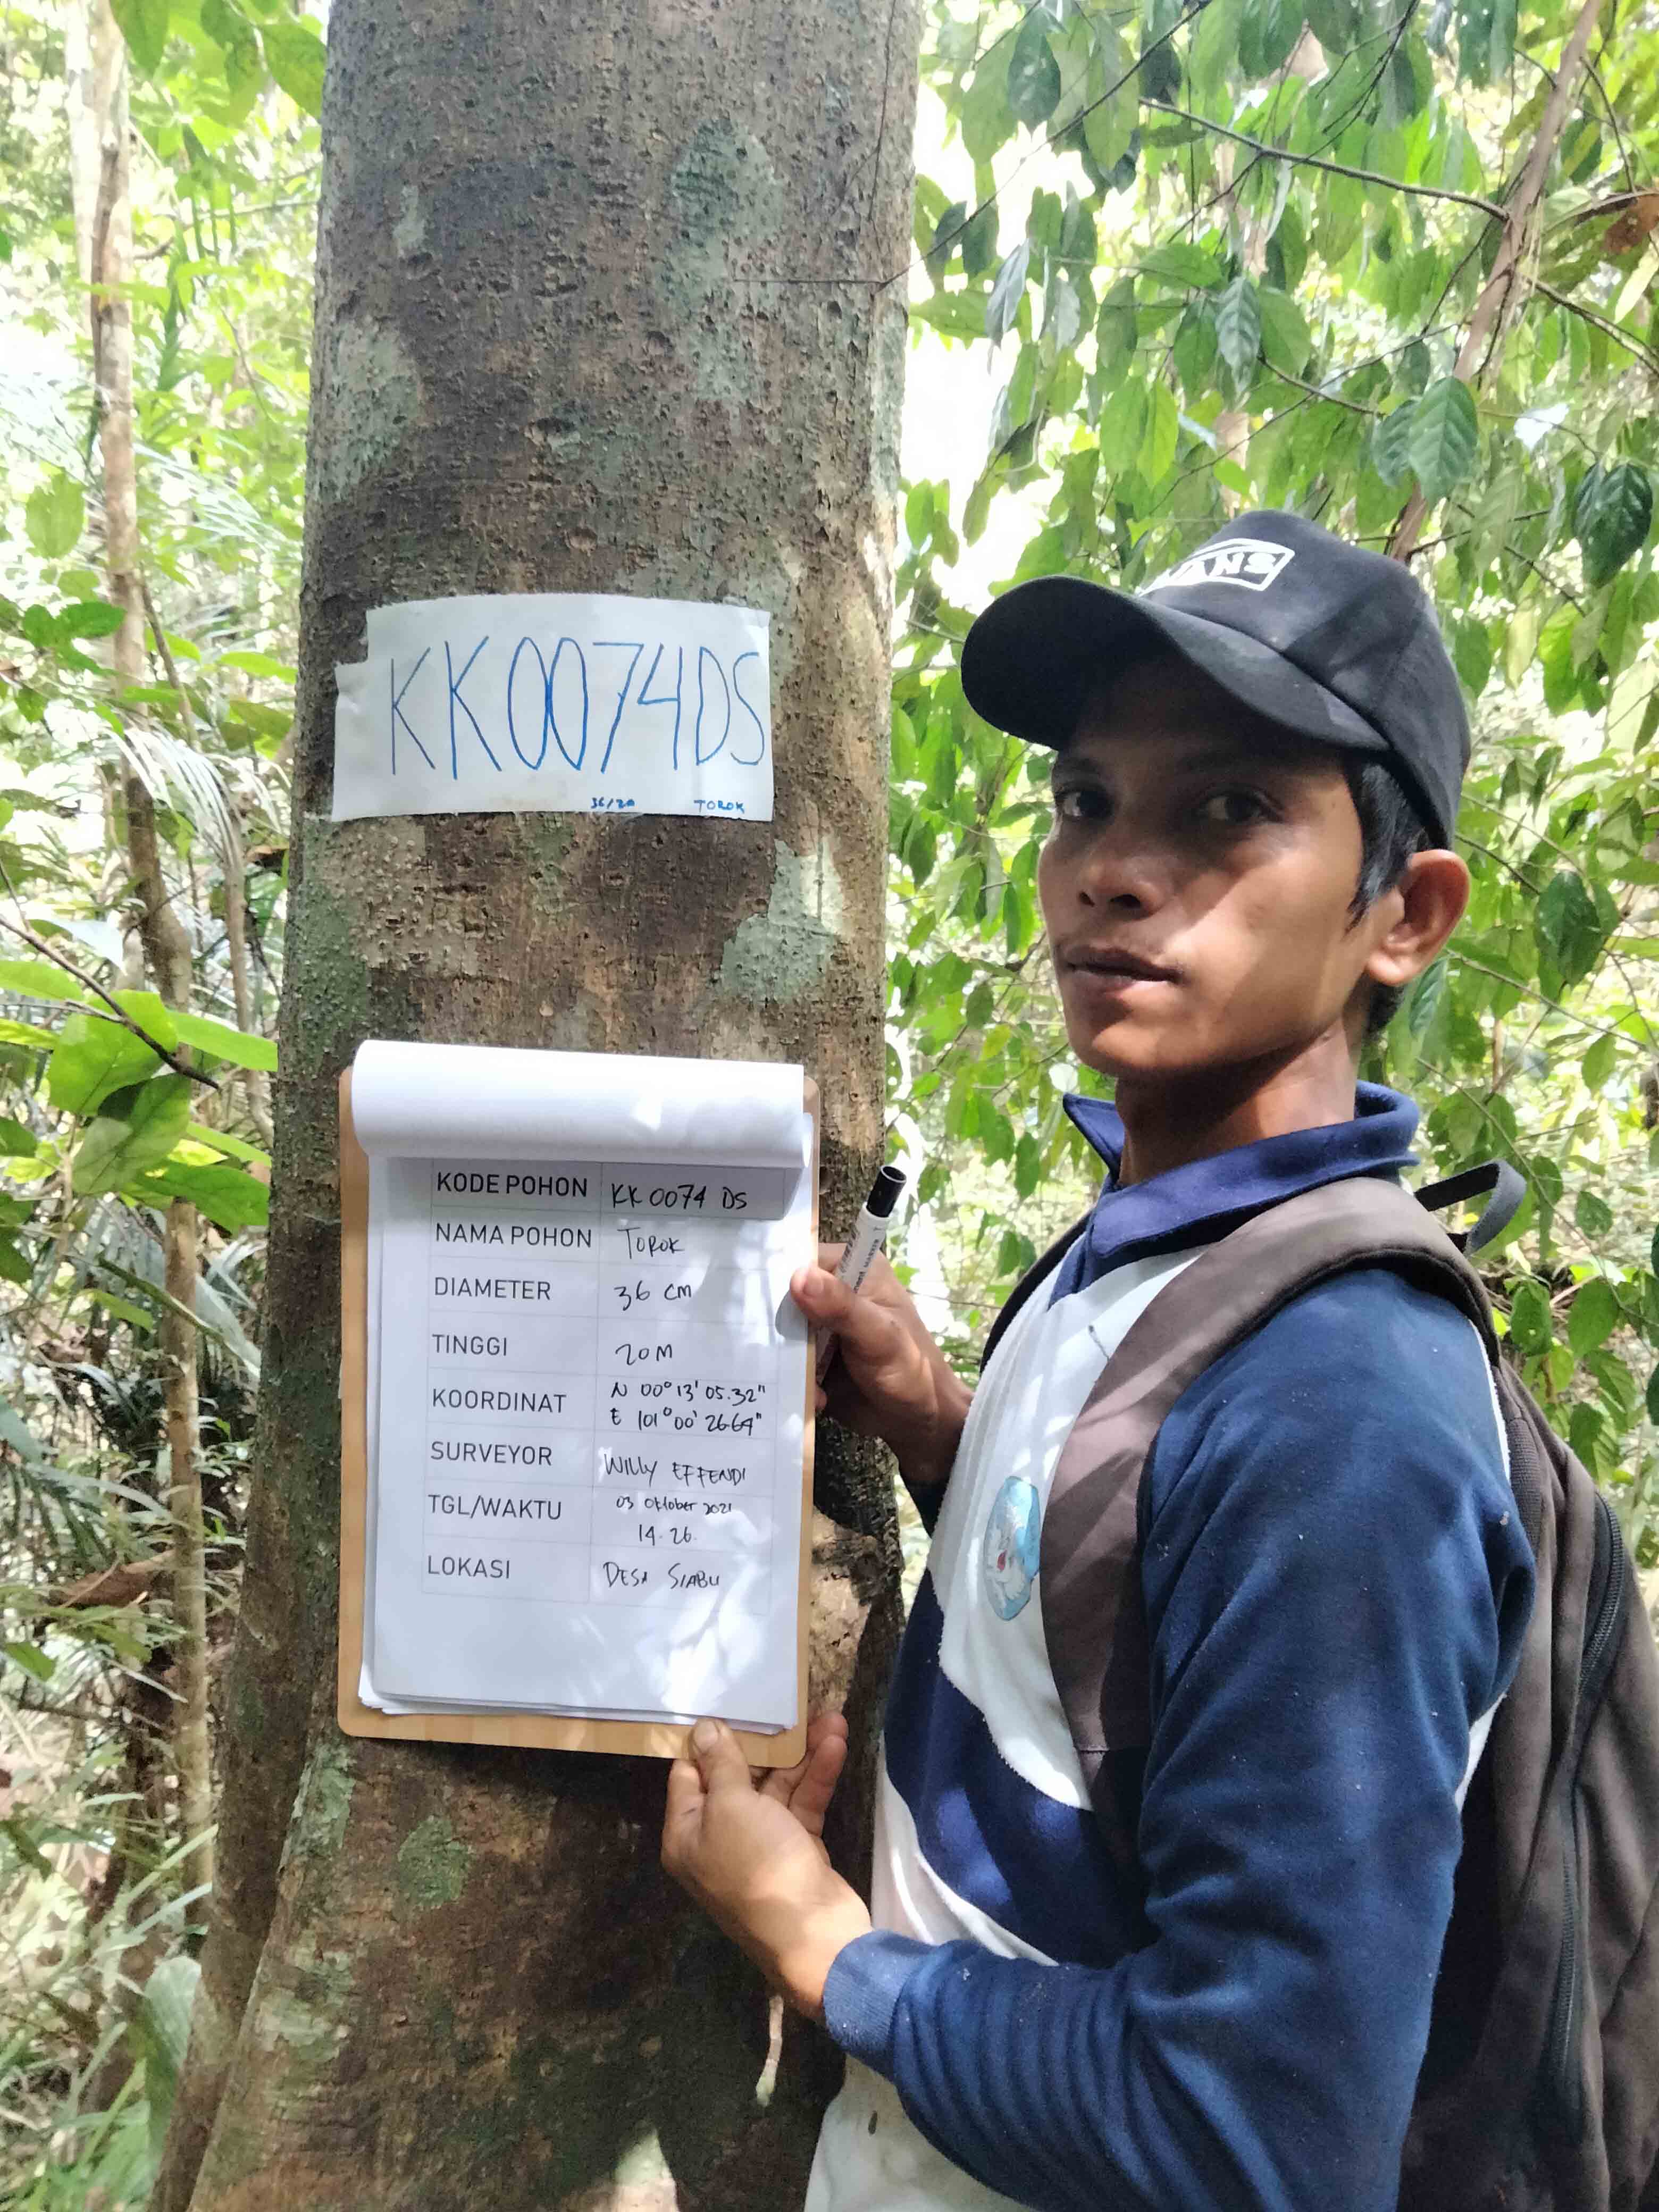 VANS
KK0074DS
36/20 TOROK
KODE POHON KK 0074 DS
NAMA POHON TOROK
DIAMETER 36 cm
TINGGI 20 M
KOORDINAT N 00° 13' 05.32"
E 101° 00' 26.64"
SURVEYOR WILLY EFFENDI
TGL/WAKTU 03 Oktober 2021
14.26.
LOKASI DESA SIABU